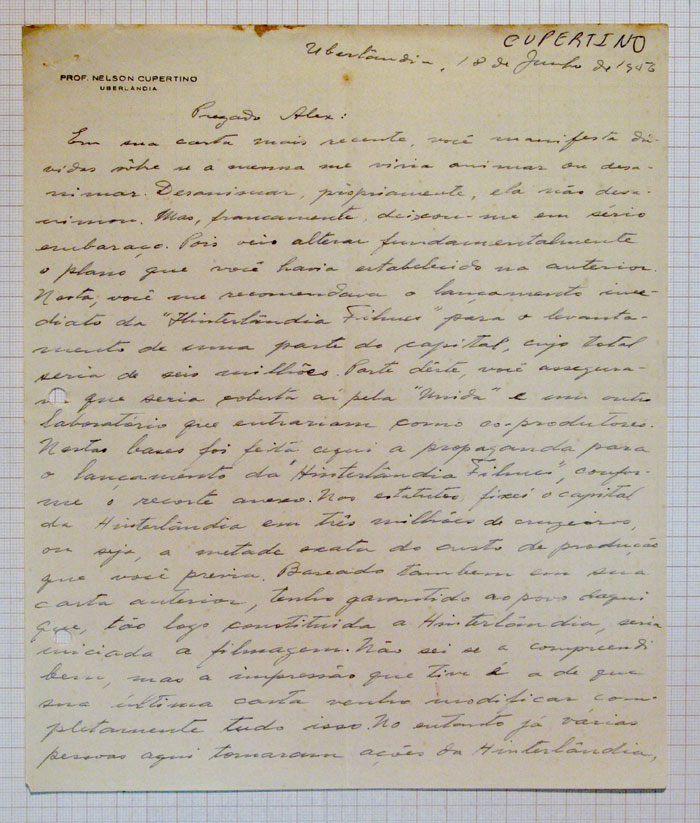 CUPERTINO
Uberlandia, 18 de Junho de 1956
PROF. NELSON CUPERTINO
UBERLANDIA
Prezado Alex:
Em sua carta mais recente, você manifesta dú-
vidas sôbre se a mesma me viria animar ou desa-
nimar. Desanimar, propriamente, ela não desa-
nimou. Mas, francamente, deixou-me em sério
embaraço. Pois veio alterar fundamentalmente
o plano que você havia estabelecido na anterior.
Nesta, você me recomendava o lançamento ime-
diato da "Hinterlândia Filmes" para o levanta-
mento de uma parte do capital, cujo total
seria de seis milhões. Parte dêste, você assegura-
va que seria coberta aí pela "Unida" e um outro
laboratório que entrariam como co-produtores.
Nestas bases foi feita aqui a propaganda para
o lançamento da "Hinterlândia Filmes", confor-
me o recorte anexo. Nos estatutos, fixei o capital
da Hinterlândia em três milhões de cruzeiros,
ou seja, a metade exata do custo de produção
que você previa. Baseado tambem em sua
carta anterior, tenho garantido ao povo daqui
que, tão logo constituida a Hinterlândia, seria
iniciada a filmagem. Não sei se a compreendi
bem, mas a impressão que tive é a de que
sua última carta venha modificar com-
pletamente tudo isso. No entanto já várias
pessoas aqui tomaram ações da Hinterlândia,